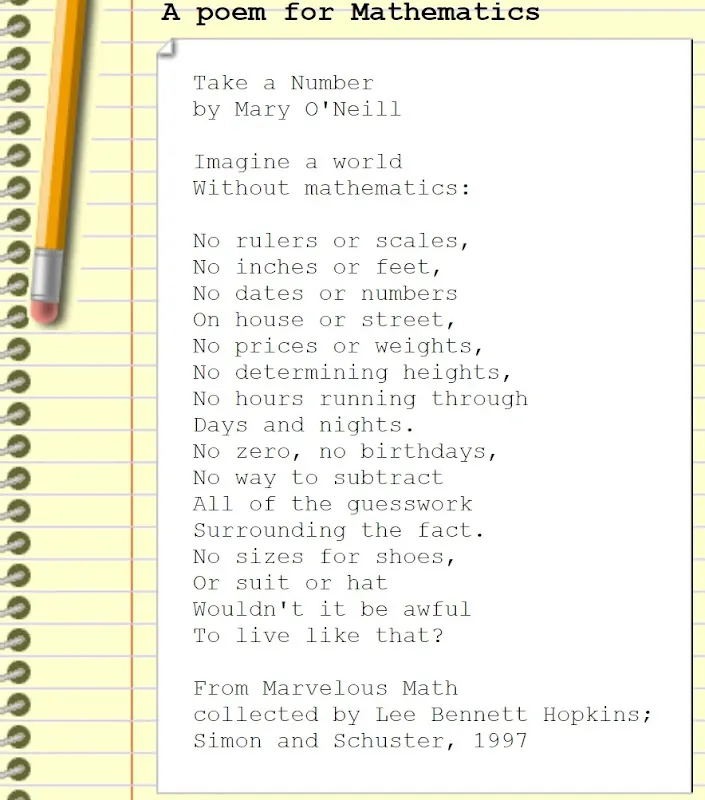 A poem for Mathematics
Take a Number
by Mary O'Neill
Imagine a world
Without mathematics:
No rulers or scales,
No inches or feet,
No dates or numbers
On house or street,
No prices or weights,
No determining heights,
No hours running through
Days and nights.
No zero, no birthdays,
No way to subtract
All of the guesswork
Surrounding the fact.
No sizes for shoes,
Or suit or hat
Wouldn't it be awful
To live like that?
From Marvelous Math
collected by Lee Bennett Hopkins;
Simon and Schuster, 1997